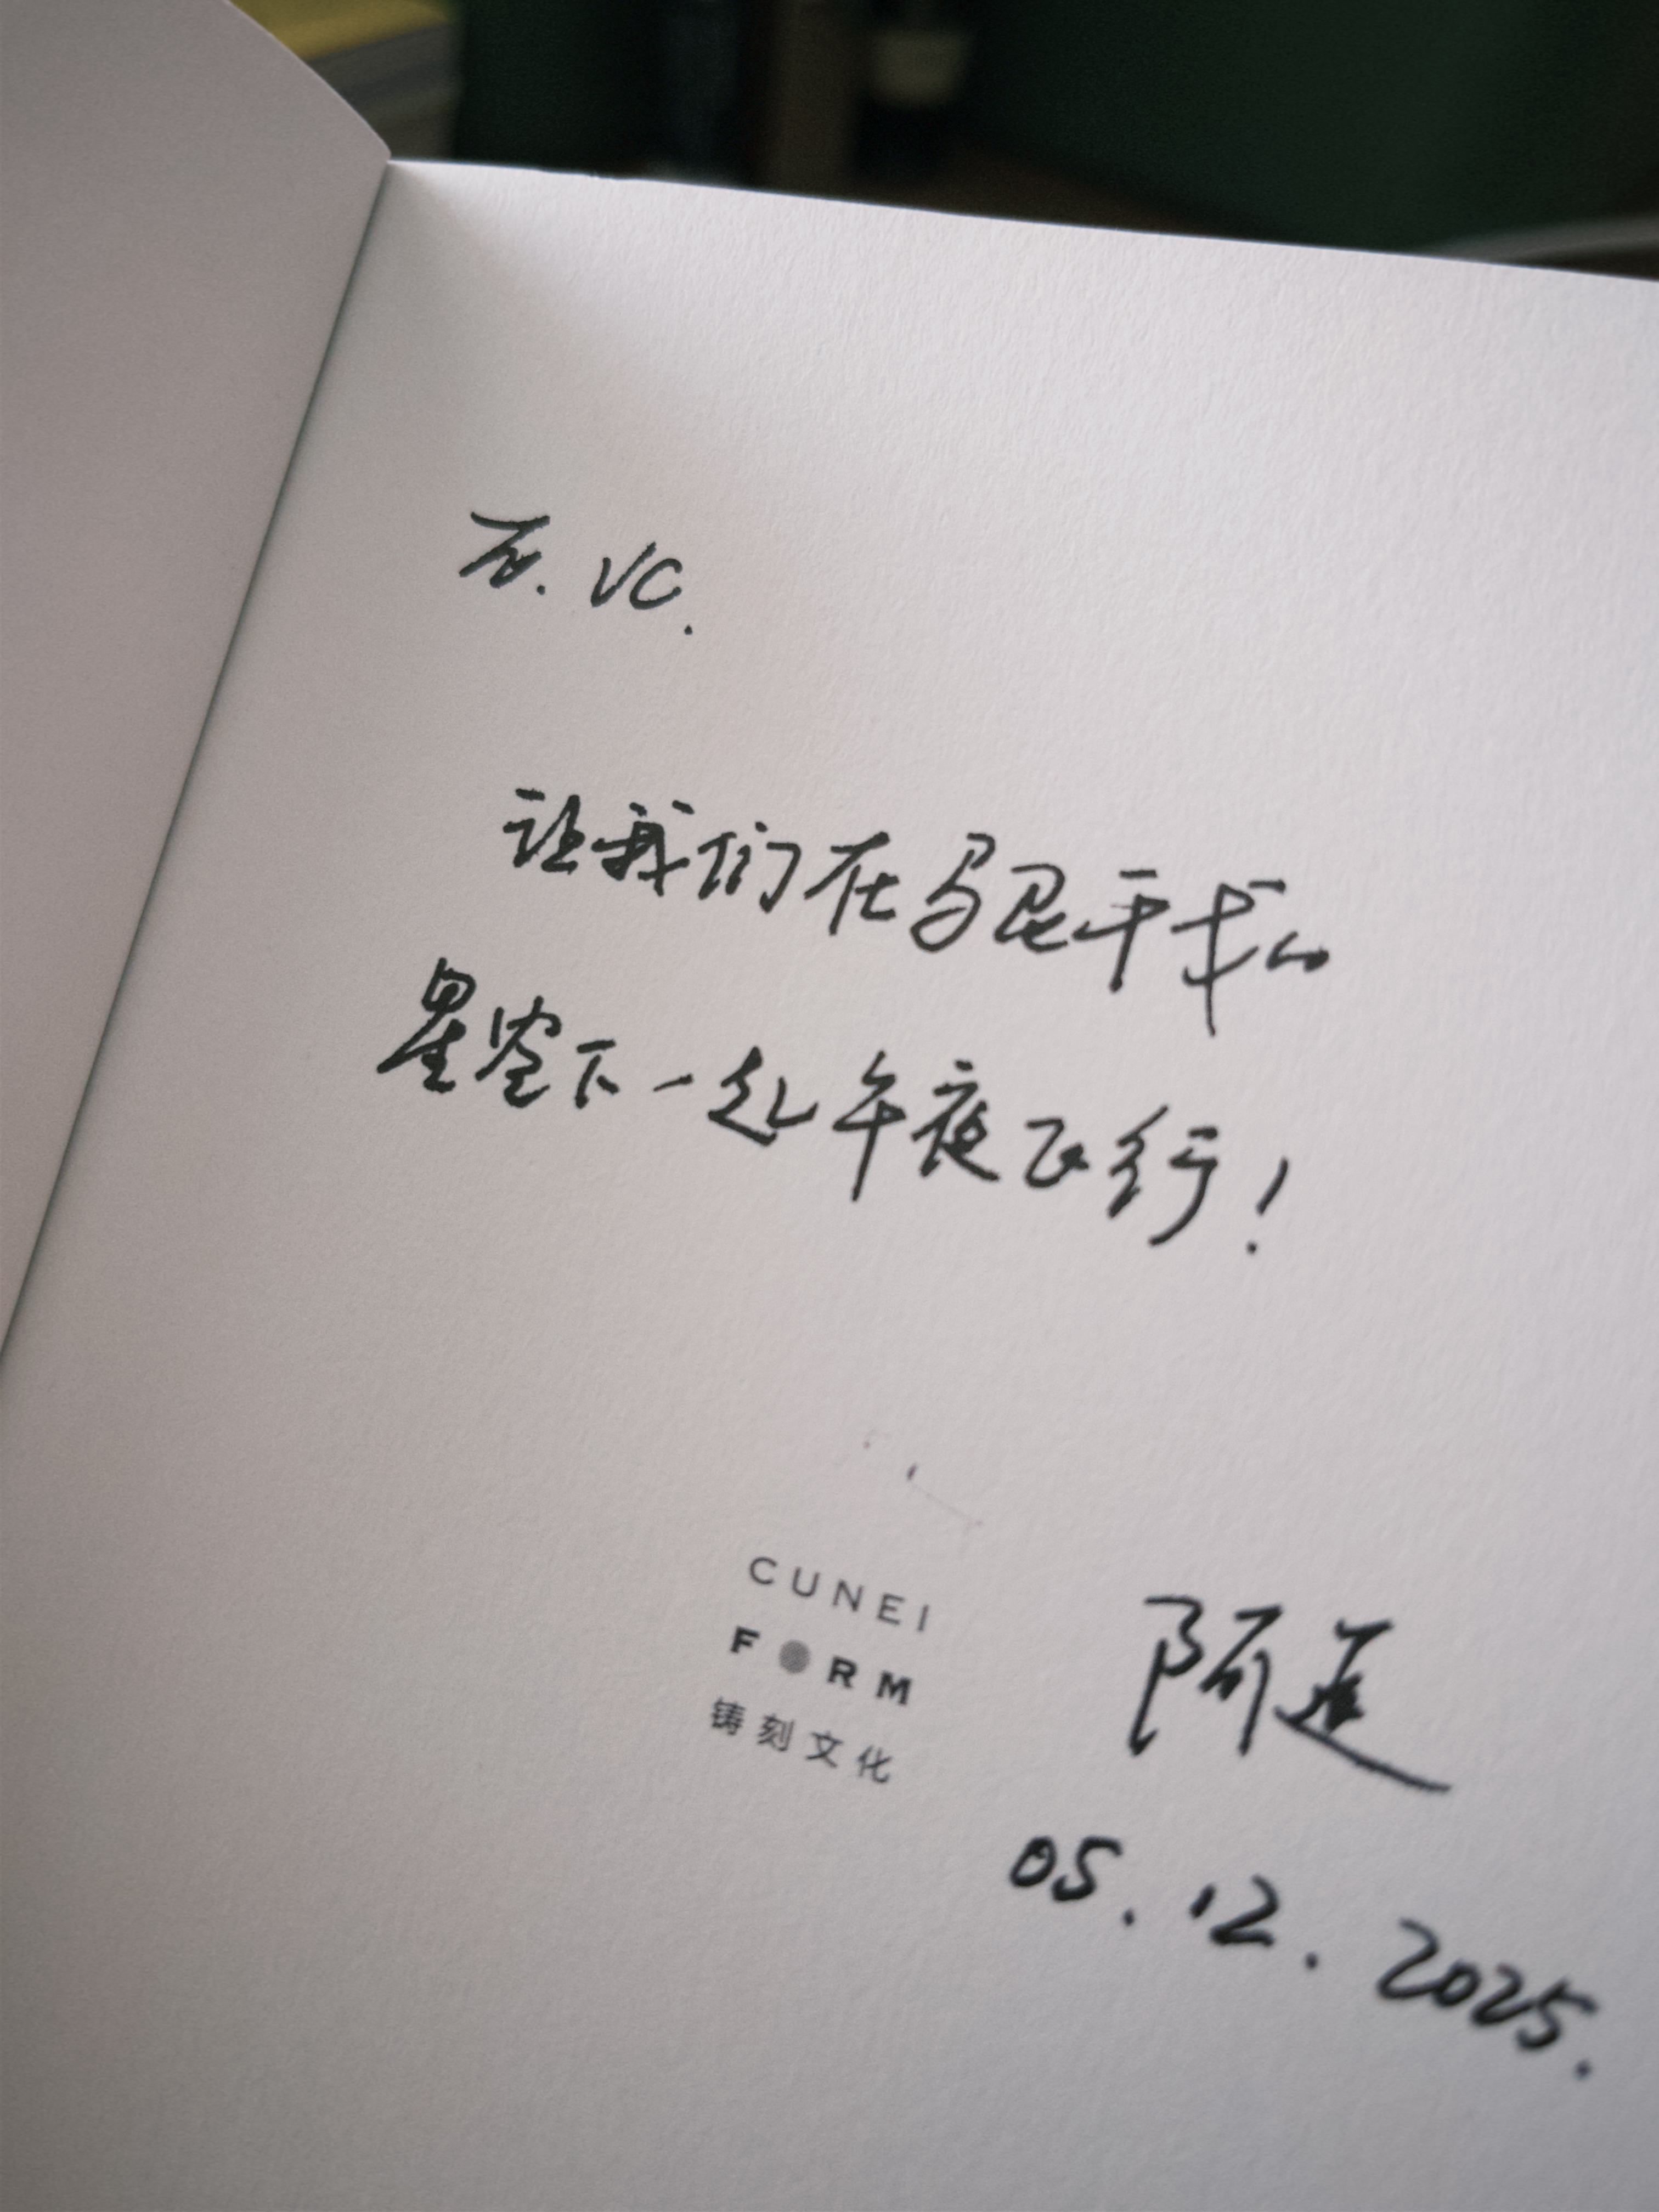 VC.
让我们在马尼干戈的
星空下一起午夜飞行！
CUNEI
FORM
铸刻文化
阿
05.12.2025.